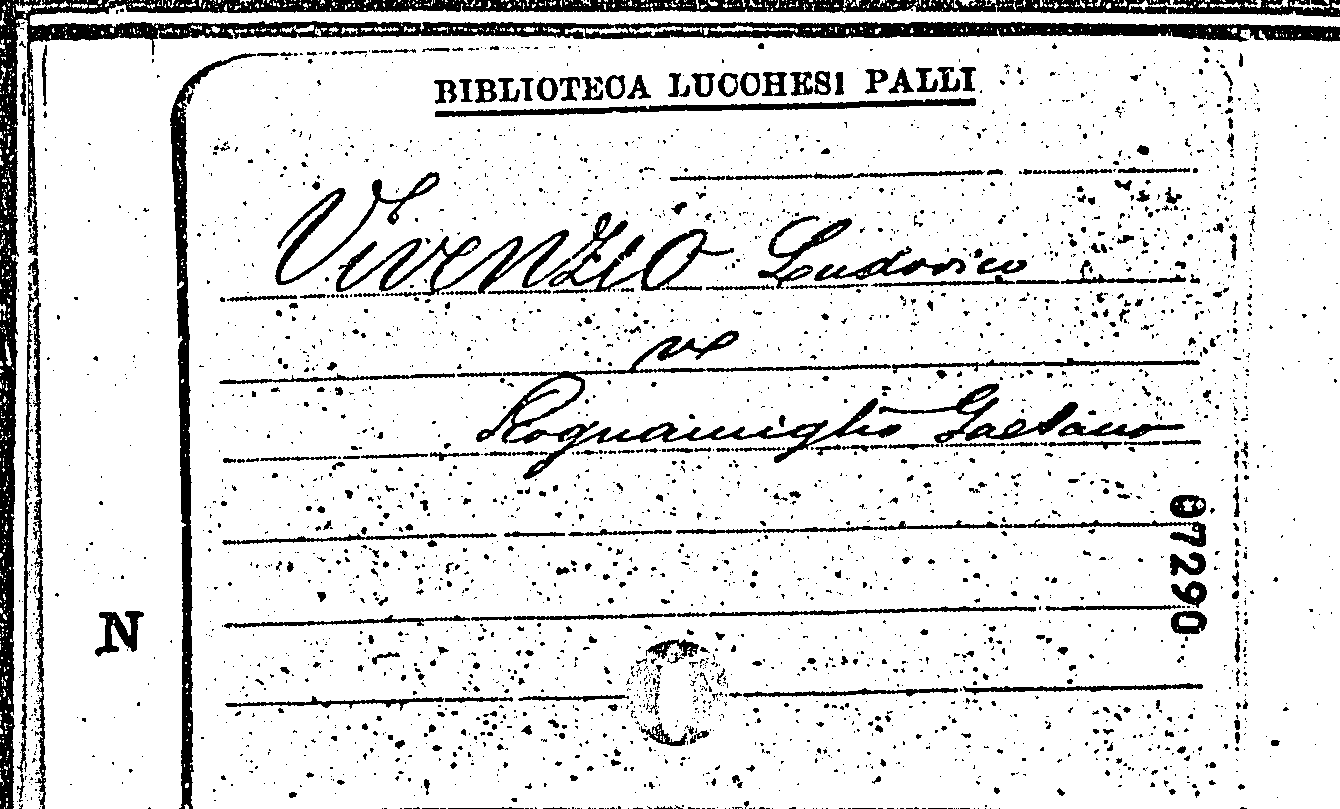 BIBLIOTECA LUCCHESI PALLI
Vivenzio Ludovico
ve
Rognamiglio Gaetano
07290
N